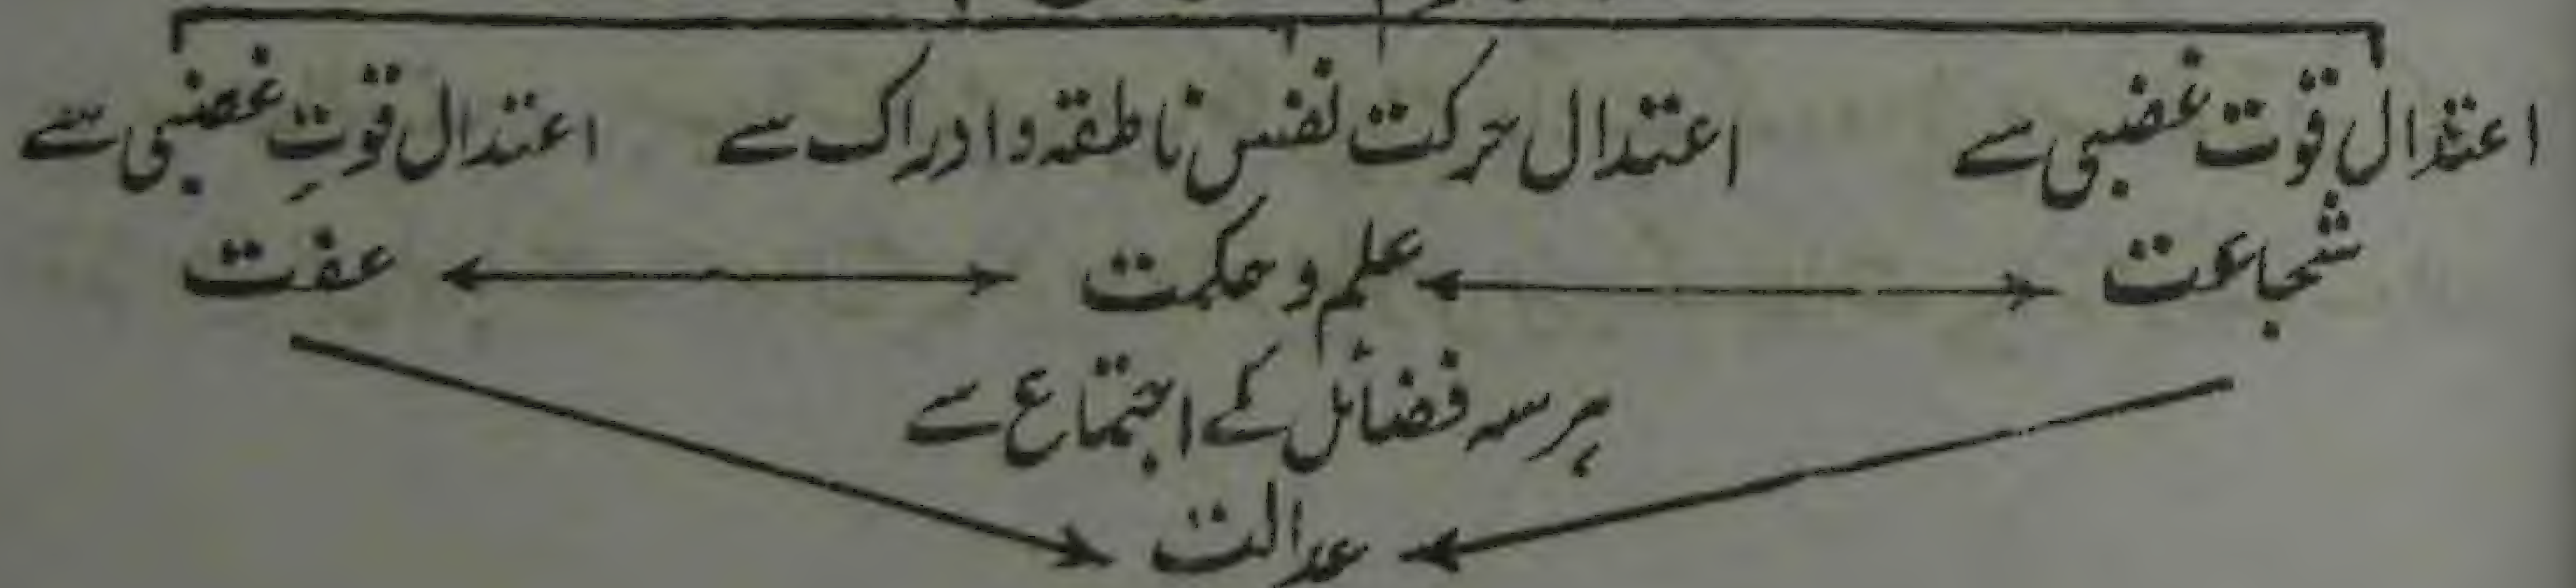 اعتدال قوت غضبی سے
اعتدال حرکت نفس ناطقہ و ادراک سے
اعتدال قوتِ غضبی سے
شجاعت
علم و حکمت
عفت
ہر سہ فضائل کے اجتماع سے
عدالت